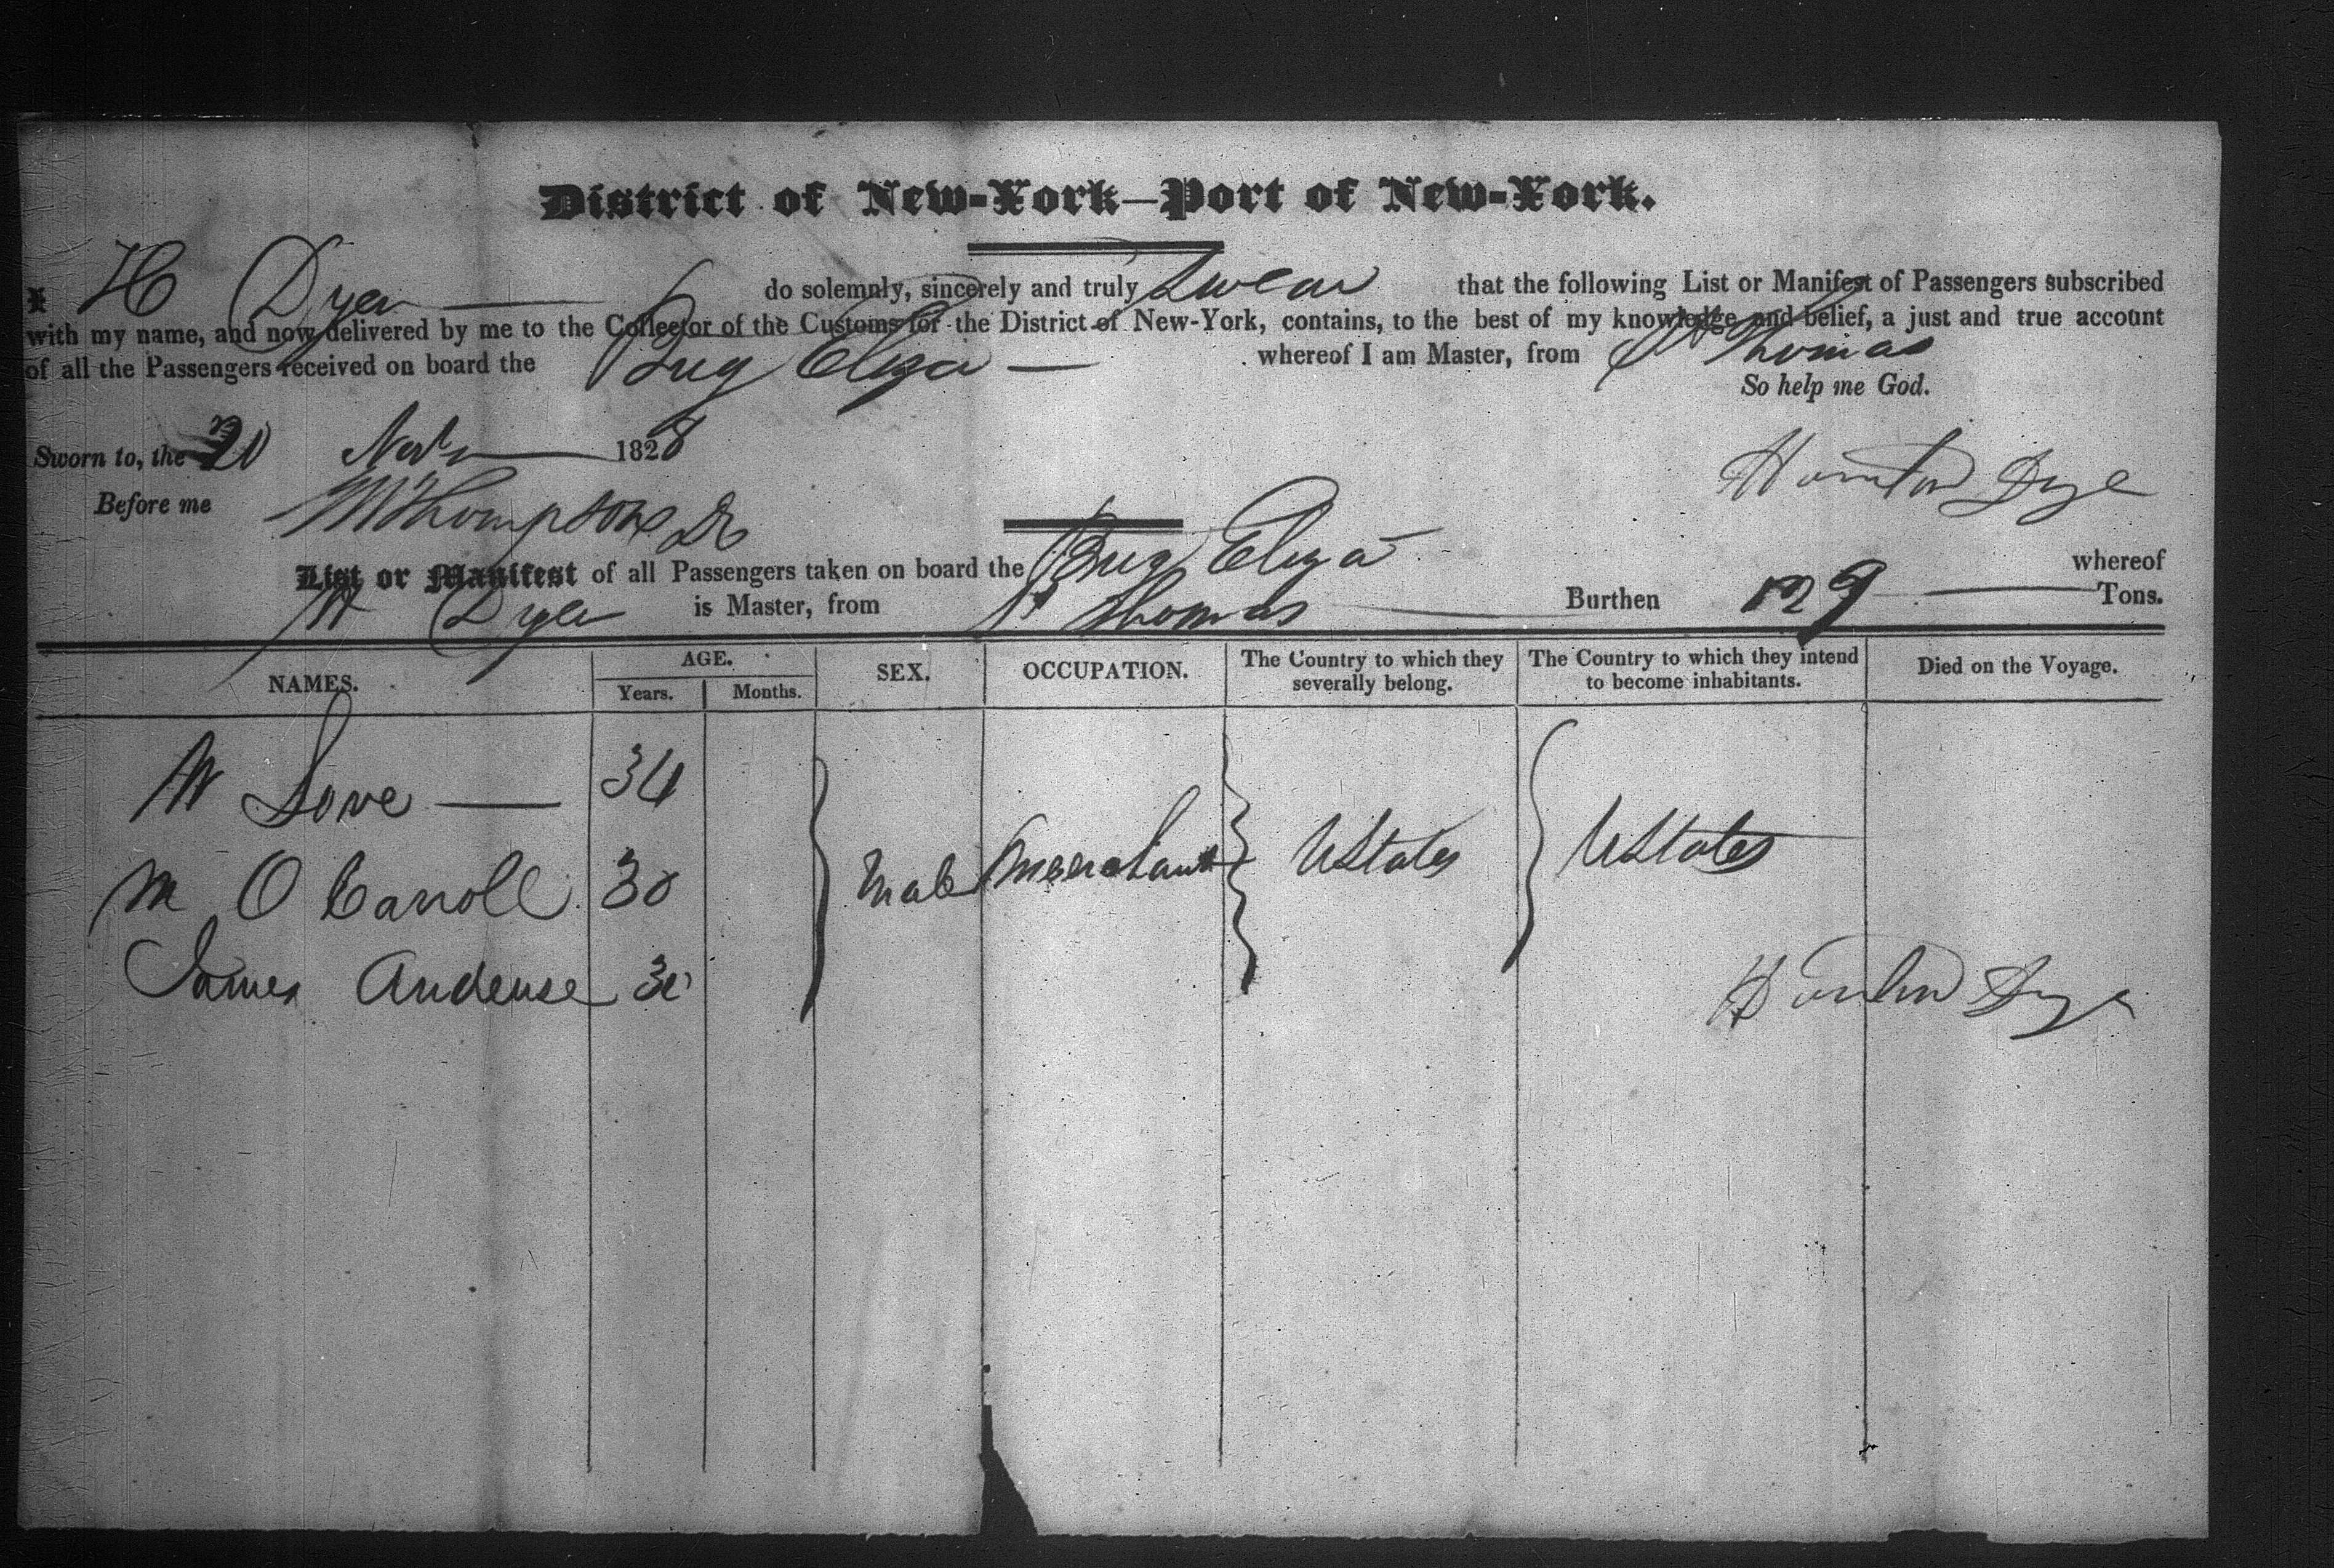 District of New-York—Port of New-York.
I H Dyer do solemnly, sincerely and truly Swear that the following List or Manifest of Passengers subscribed
with my name, and now delivered by me to the Collector of the Customs for the District of New-York, contains, to the best of my knowledge and belief, a just and true account
of all the Passengers received on board the Brig Eliza — whereof I am Master, from St Thomas
So help me God.
Sworn to, the 20 Novr 1828
Before me Thompson Dye
List or Manifest of all Passengers taken on board the Brig Eliza whereof
H Dyer is Master, from St Thomas Burthen 129 Tons.
NAMES. AGE. Years. Months. SEX. OCCUPATION. The Country to which they severally belong. The Country to which they intend to become inhabitants. Died on the Voyage.
M Love — 34
M O Carroll 30 Male Merchant UStates UStates
James 30 Dye